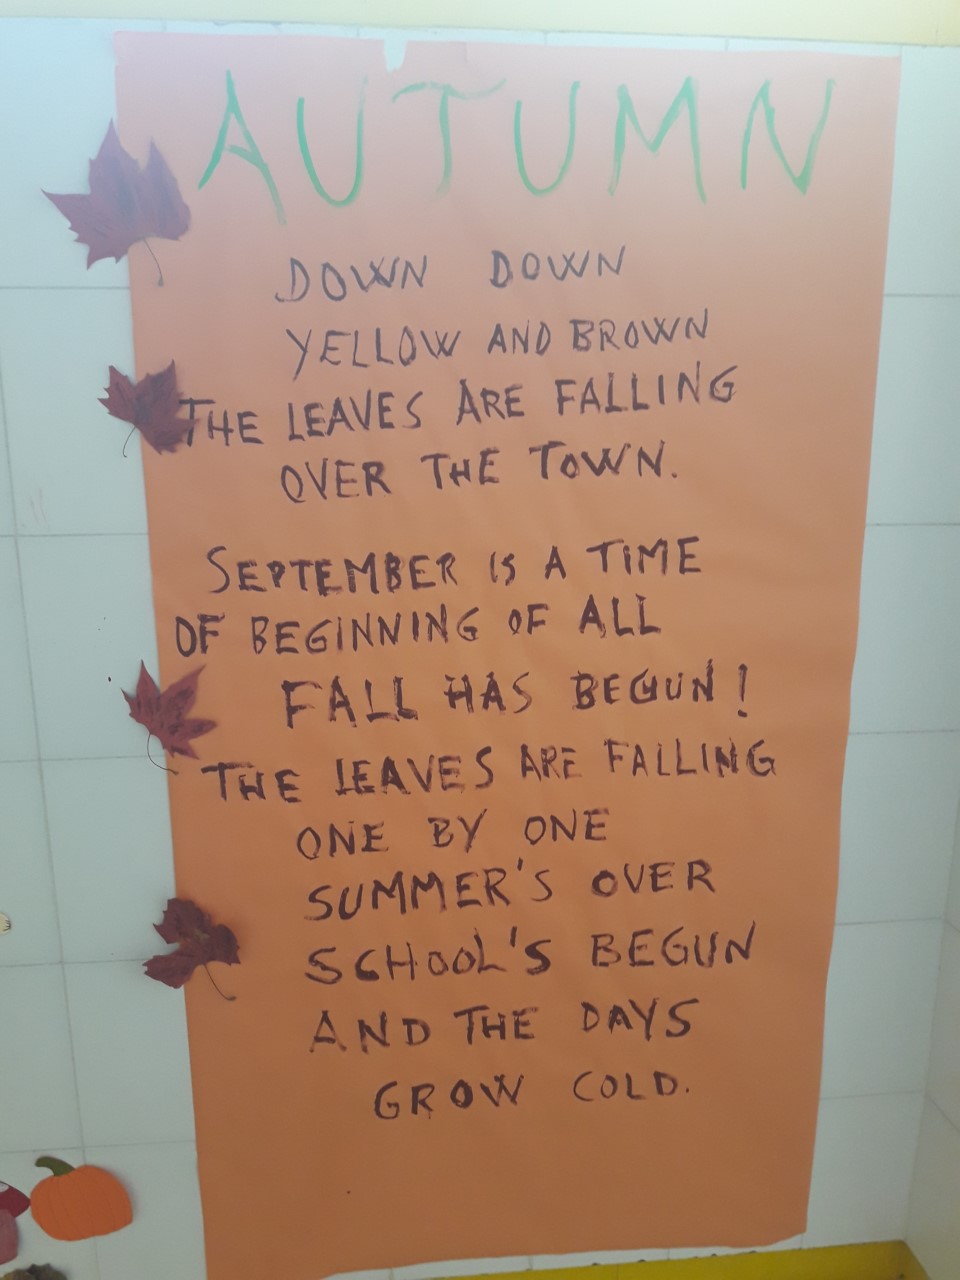 AUTUMN
DOWN DOWN
YELLOW AND BROWN
THE LEAVES ARE FALLING
OVER THE TOWN.
SEPTEMBER IS A TIME
OF BEGINNING OF ALL
FALL HAS BEGUN!
THE LEAVES ARE FALLING
ONE BY ONE
SUMMER'S OVER
SCHOOL'S BEGUN
AND THE DAYS
GROW COLD.